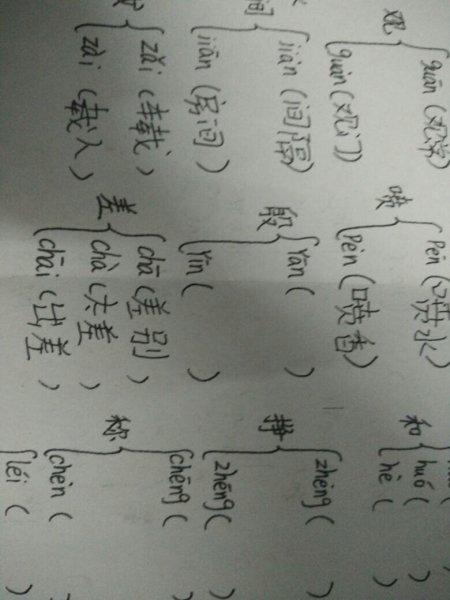 guān (观赏)
观
guàn (观门)
喷
pēn (喷水)
pèn (喷香)
和
huó ( )
hè ( )
间
jiàn (间隔)
jiān (房间)
殷
yān ( )
yīn ( )
挣
zhèng ( )
zhēng ( )
zǎi (转载)
zài (载入)
差
chā (差别)
chà (太差)
chāi (出差)
称
chēng ( )
chèn ( )
léi ( )